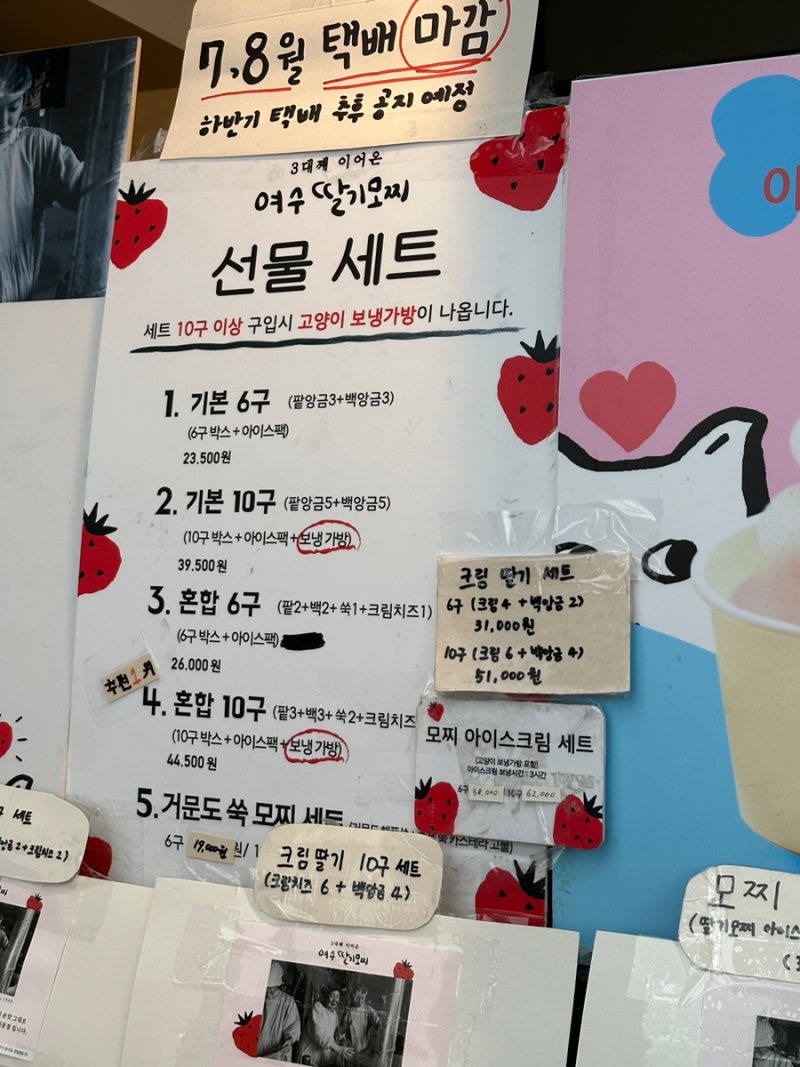 7,8월 택배 마감
하반기 택배 추후 공지 예정
3대째 이어온
여수 딸기모찌
선물 세트
세트 10구 이상 구입시 고양이 보냉가방이 나옵니다.
1. 기본 6구 (팥앙금3+백앙금3)
(6구 박스 + 아이스팩)
23.500원
2. 기본 10구 (팥앙금5+백앙금5)
(10구 박스 + 아이스팩 + 보냉 가방)
39.500원
3. 혼합 6구 (팥2+백2+ 쑥1+크림치즈1)
(6구 박스 + 아이스팩)
26.000원
추천 1위
4. 혼합 10구 (팥3+백3+ 쑥2+크림치즈
(10구 박스 + 아이스팩 + 보냉 가방)
44.500원
5. 거문도 쑥 모찌 세트
6구 19,000원/ 1
쑥 카스테라 고물)
크림 딸기 세트
6구 (크림4 + 백앙금 2)
31,000원
10구 (크림 6 + 백앙금 4)
51,000원
모찌 아이스크림 세트
(고양이 보냉가방 포함)
아이스크림 보냉시간 : 3시간
6구 38,000 10구 62,000
크림딸기 10구 세트
(크림치즈 6 + 백앙금 4)
구 세트
앙금2+크림치즈2)
3대째 이어온
여수 딸기모찌
모찌
(딸기모찌 아이스